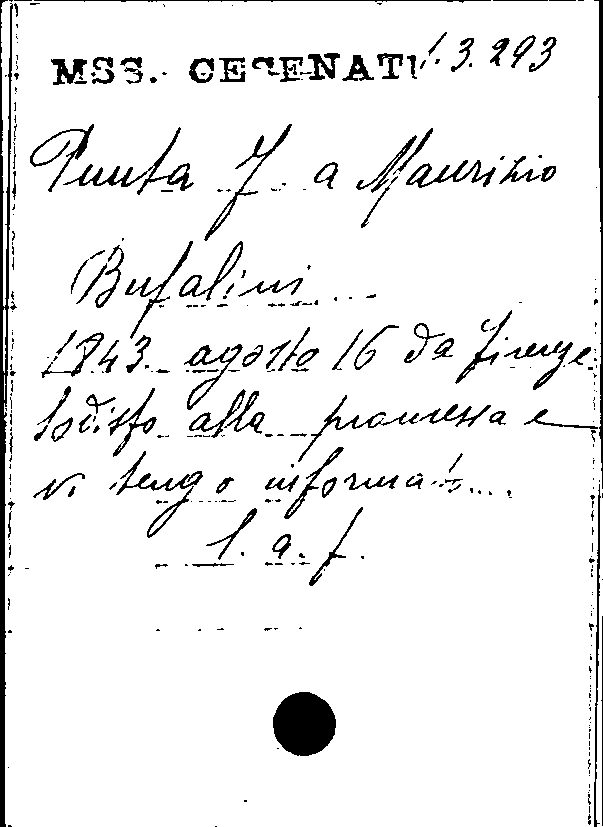 MSS. CESENATI 1.3.293
Punta F. a Maurizio
Bufalini
1843. agosto 16 da Firenze
Sodisfo alla promessa e
vi tengo informato...
l. a. f.